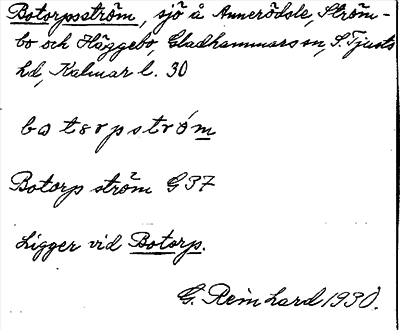 Botorpsström, sjö å Annerödsle, Ström-
bo och Häggebo, Gladhammars sn, S. Tjusts
hd, Kalmar l. 30
botorpström
Botorp ström G37
Ligger vid Botorp.
G. Reinhard 1930.